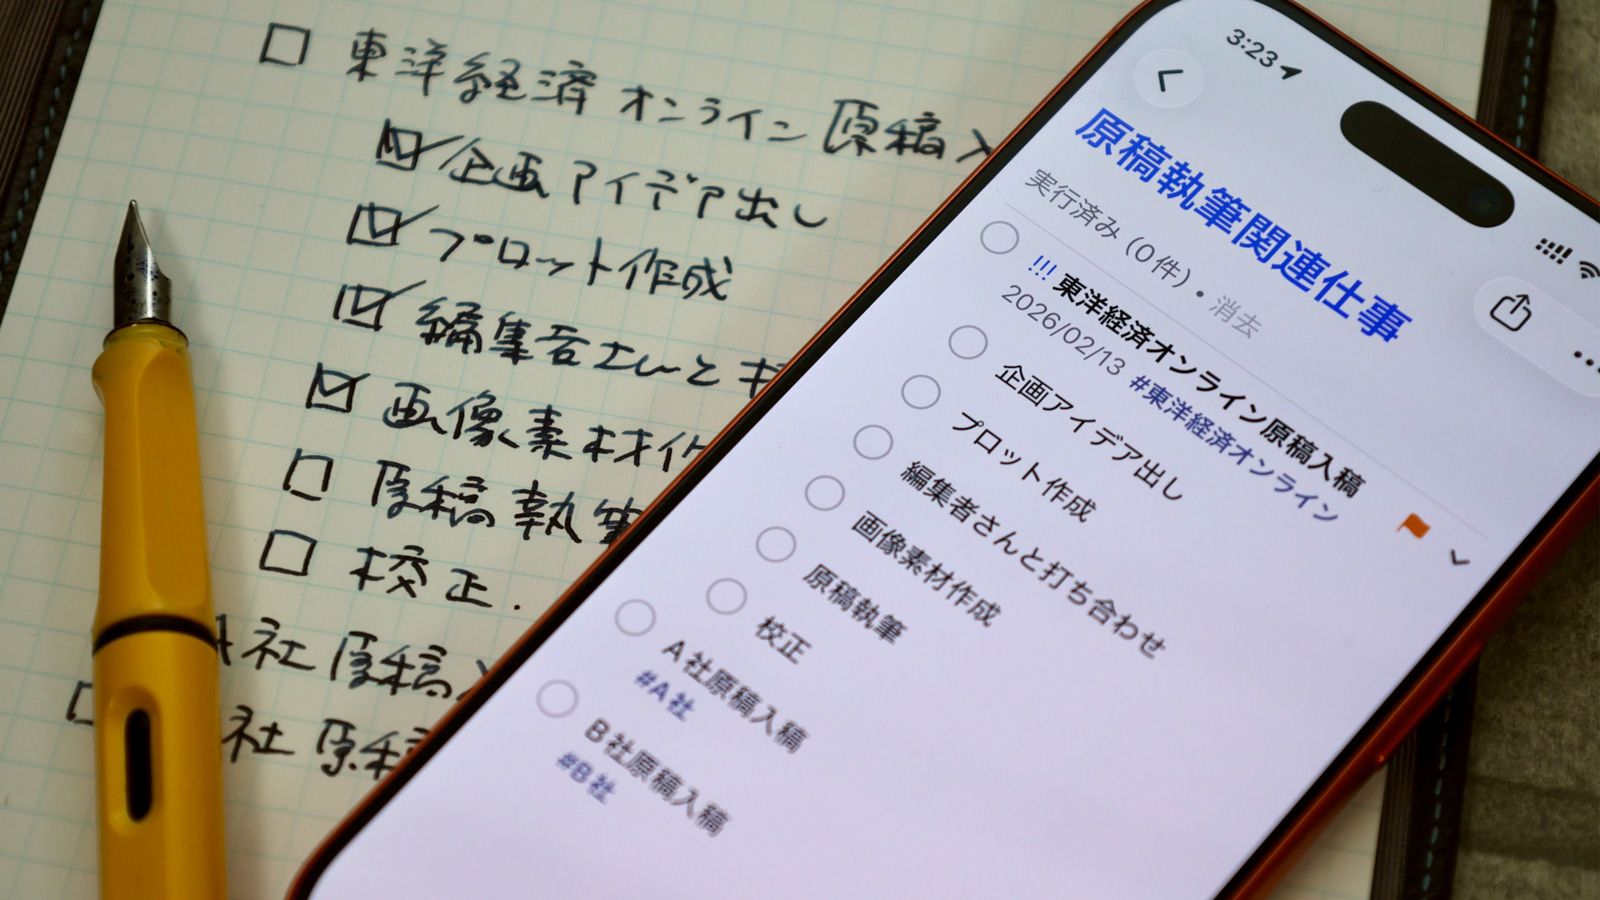 東洋経済オンライン原稿入
企画アイデア出し
プロット作成
編集者さんと打
画像素材作
原稿執筆
校正.
A社原稿入
社原稿
3:23
原稿執筆関連仕事
実行済み(0件)・消去
!!! 東洋経済オンライン原稿入稿
2026/02/13 #東洋経済オンライン
企画アイデア出し
プロット作成
編集者さんと打ち合わせ
画像素材作成
原稿執筆
校正
A社原稿入稿
#A社
B社原稿入稿
#B社